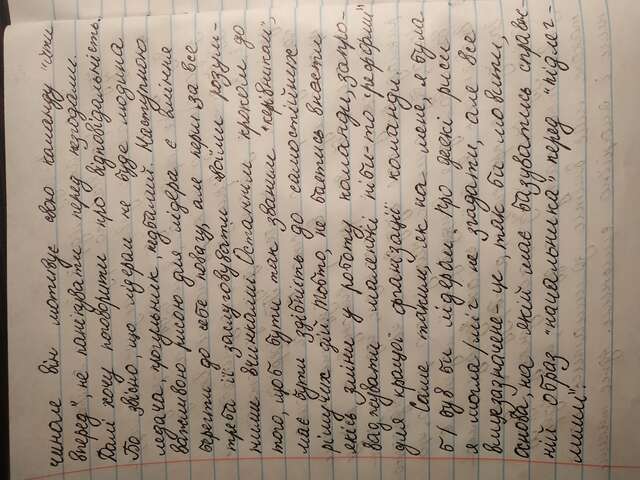 чином він мотивує свою команду "йти
вперед", не пасувати перед незгодами.
Далі хочу поговорити про відповідальність.
Бо звісно, що лідером не буде людина
ледача, прогульник, недбалий. Наступною
важливою рисою для лідера є вміння
берегти до себе повагу, але перш за все
треба її заслуговувати своїми розум-
ними вчинками. Останнім кроком до
того, щоб бути так званим "керівником",
має бути здібність до самостійних
рішучих дій. Тобто, не боятись внести
якісь зміни у роботу команди, запро-
ваджувати маленькі ніби-то "реформи"
для кращої організації команди.
Саме таким, як на мене, я була
б/був би лідером. Про деякі риси
я могла/міг не згадати, але все
вищезазначене - це, так би мовити,
основа, на якій має базуватись справж-
ній образ "начальника" перед "підлег-
лими".